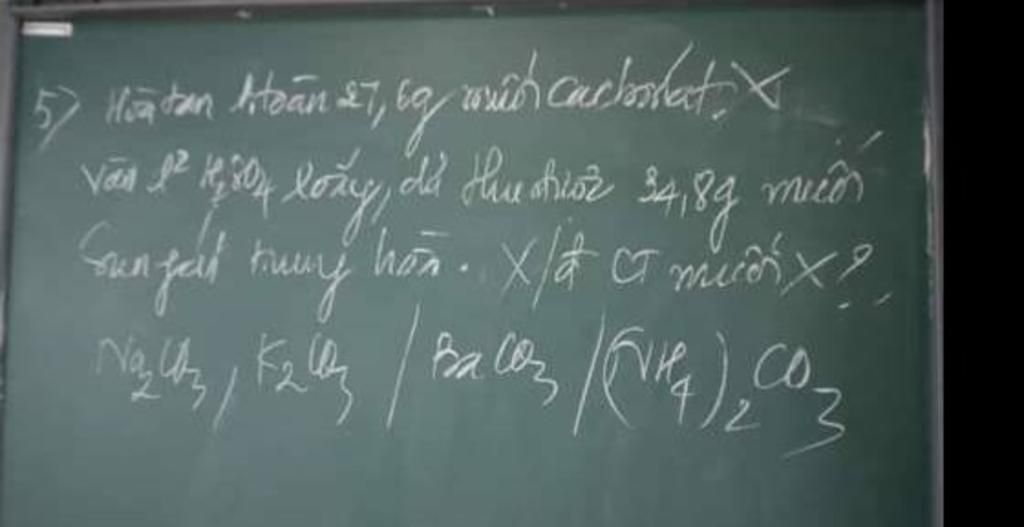 5) Hoà tan htoàn 27,6g muối cacbonat X
vào l² H₂SO₄ loãng, dư thu được 34,8g muối
Sunfat trung hòa. X/đ CT muối X?
Na₂CO₃, K₂CO₃ / BaCO₃ / (NH₄)₂CO₃